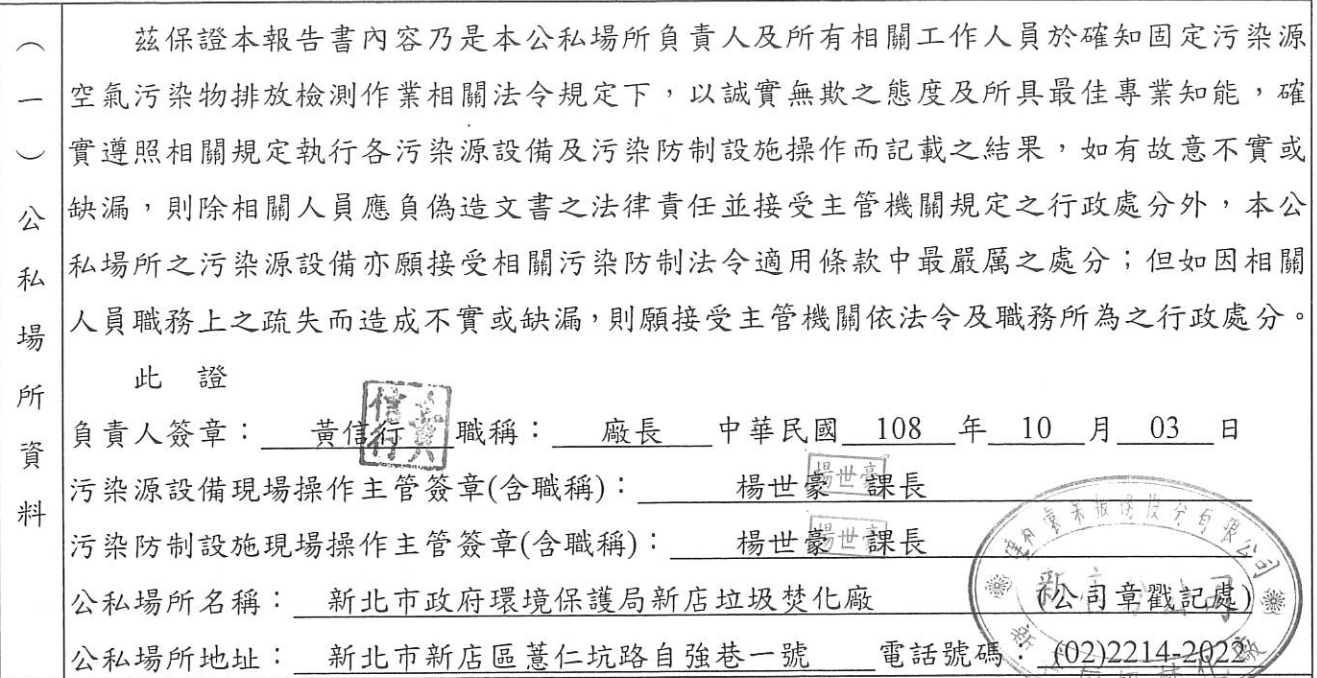 （一）公私場所資料
茲保證本報告書內容乃是本公私場所負責人及所有相關工作人員於確知固定污染源
空氣污染物排放檢測作業相關法令規定下，以誠實無欺之態度及所具最佳專業知能，確
實遵照相關規定執行各污染源設備及污染防制設施操作而記載之結果，如有故意不實或
缺漏，則除相關人員應負偽造文書之法律責任並接受主管機關規定之行政處分外，本公
私場所之污染源設備亦願接受相關污染防制法令適用條款中最嚴厲之處分；但如因相關
人員職務上之疏失而造成不實或缺漏，則願接受主管機關依法令及職務所為之行政處分。
此 證
負責人簽章： 黃信行 職稱： 廠長 中華民國 108 年 10 月 03 日
污染源設備現場操作主管簽章(含職稱)： 楊世豪 課長
楊世豪
污染防制設施現場操作主管簽章(含職稱)： 楊世豪 課長
楊世豪
公私場所名稱： 新北市政府環境保護局新店垃圾焚化廠 (公司章戳記處)
公私場所地址： 新北市新店區薏仁坑路自強巷一號 電話號碼： (02)2214-2022